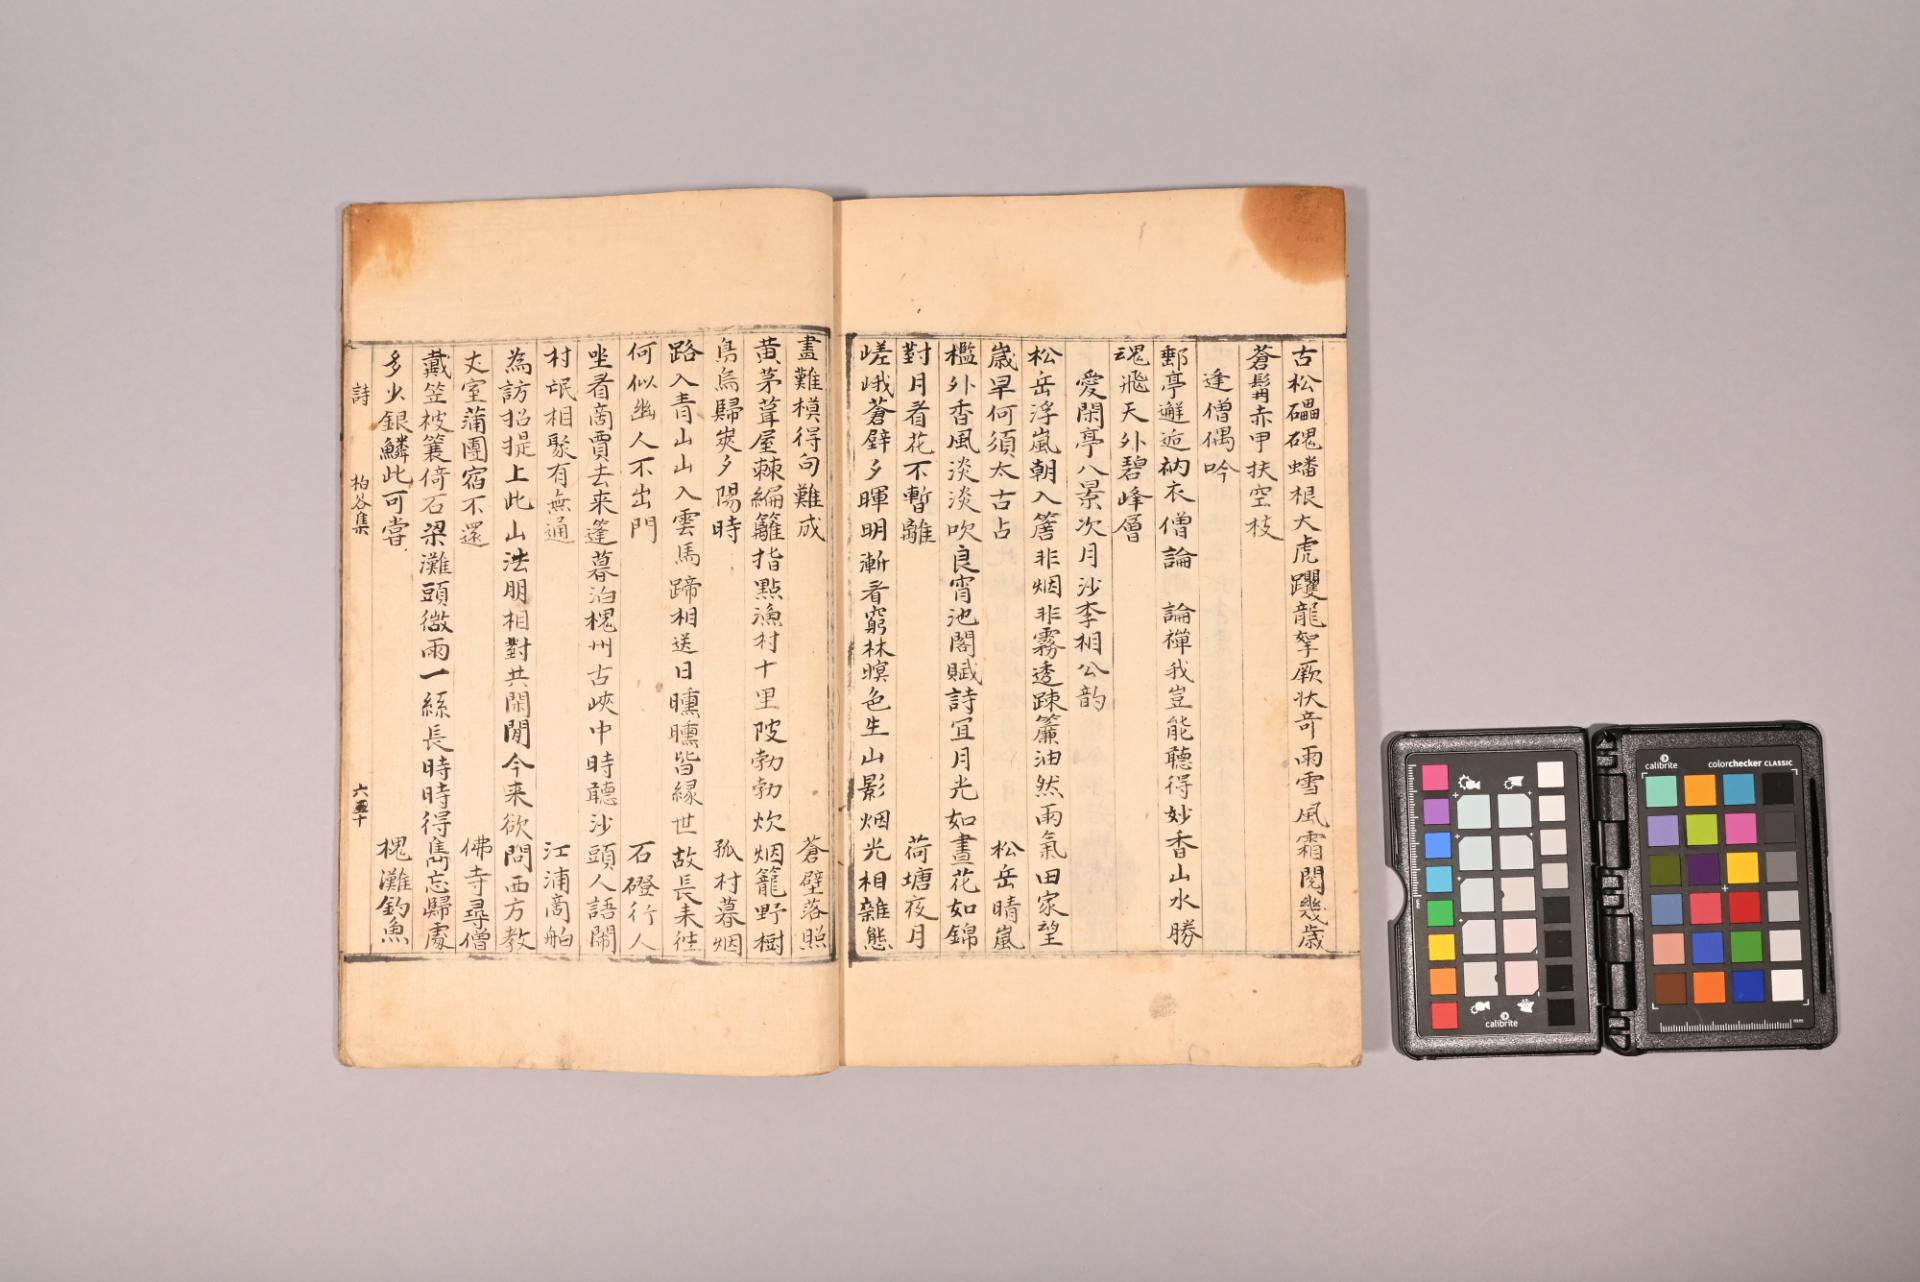 古松礧磈蟠根大虎躍龍拏厥狀奇雨雪風霜閱幾歲
蒼髥赤甲扶空枝
逢僧偶吟
郵亭邂逅衲衣僧論 論禪我豈能聽得妙香山水勝
魂飛天外碧峰層
愛閑亭八景次月沙李相公韵
松岳浮嵐朝入簷非烟非霧透踈簾油然雨氣田家望
歲早何須太古占 松岳晴嵐
檻外香風淡淡吹良宵池閣賦詩宜月光如晝花如錦
對月看花不暫離 荷塘夜月
嵯峨蒼壁夕暉明漸看窮林暝色生山影烟光相雜態
畵難模得句難成 蒼壁落照
黄茅葺屋棘編籬指點漁村十里陂勃勃炊烟籠野樹
鳥烏歸哭夕陽時 孤村暮烟
路入青山山入雲馬蹄相送日曛曛皆緣世故長來往
何似幽人不出門 石磴行人
坐看商賈去来篷暮泊槐州古峽中時聽沙頭人語鬧
村氓相聚有無通 江浦商舶
為訪招提上此山法朋相對共閑閒今来欲問西方教
丈室蒲團宿不還 佛寺尋僧
戴笠披簑倚石梁灘頭微雨一絲長時時得雋忘歸處
多少銀鱗此可嘗 槐灘釣魚
詩 柏谷集 六五十
calibrite
calibrite colorchecker CLASSIC
mm